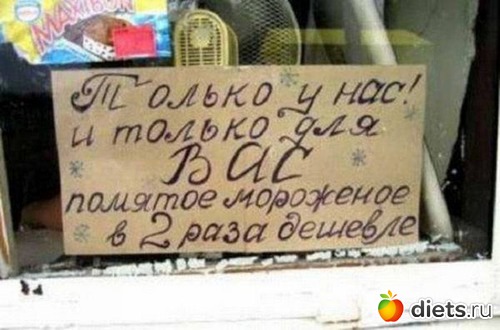 MAXIBON
Только у нас!
и только для
ВАС
помятое мороженое
в 2 раза дешевле
diets.ru